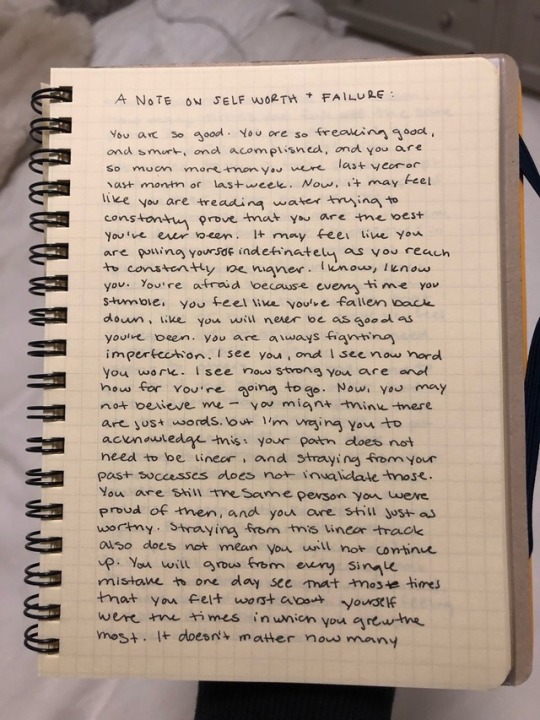 A NOTE ON SELF WORTH + FAILURE:
You are so good. You are so freaking good,
and smart, and acomplished, and you are
so much more than you were last year or
last month or last week. Now, it may feel
like you are treading water trying to
constantly prove that you are the best
you've ever been. It may feel like you
are pulling yourself indefinitely as you reach
to constantly be higher. I know, I know
you. You're afraid because every time you
stumble, you feel like you've fallen back
down, like you will never be as good as
you've been. You are always fighting
imperfection. I see you, and I see how hard
you work. I see how strong you are and
how far you're going to go. Now, you may
not believe me — you might think there
are just words. but I'm urging you to
acknowledge this: your path does not
need to be linear, and straying from your
past successes does not invalidate those.
You are still the same person you were
proud of then, and you are still just as
worthy. Straying from this linear track
also does not mean you will not continue
up. You will grow from every single
mistake to one day see that those times
that you felt worst about yourself
were the times in which you grew the
most. It doesn't matter how many